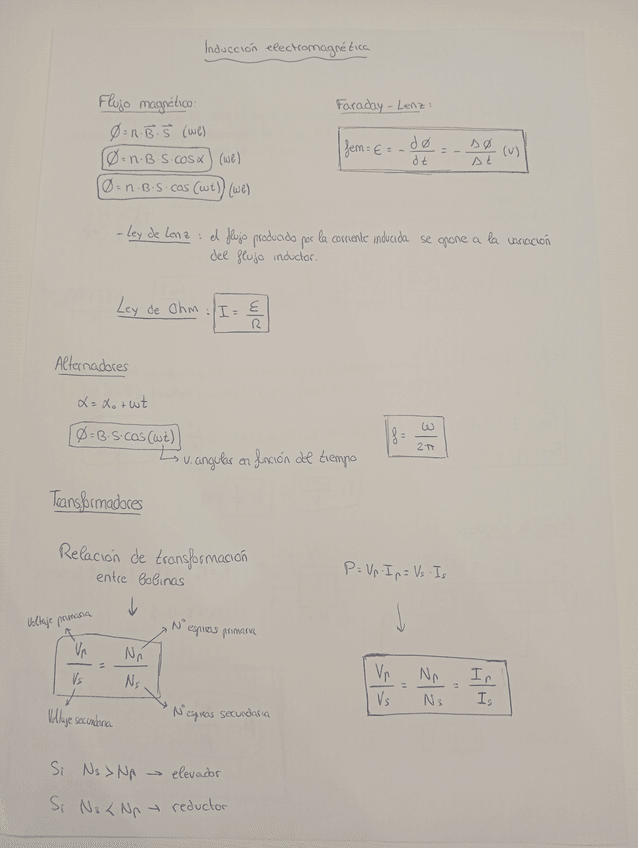 Inducción electromagnética
Flujo magnético:
Φ = n·B⃗·S⃗ (wb)
Φ = n·B·S·cosα (wb)
Φ = n·B·S·cos(ωt) (wb)
Faraday - Lenz:
fem = ε = - dΦ/dt = - ΔΦ/Δt (V)
- Ley de Lenz: el flujo producido por la corriente inducida se opone a la variación
del flujo inductor.
Ley de Ohm: I = ε/R
Alternadores
α = α₀ + ωt
Φ = B·S·cos(ωt)
↳ v. angular en función del tiempo
f = ω/2π
Transformadores
Relación de transformación
entre bobinas
↓
Voltaje primaria
Nº espiras primaria
Vp/Vs = Np/Ns
Voltaje secundaria
Nº espiras secundaria
P = Vp·Ip = Vs·Is
↓
Vp/Vs = Np/Ns = Ip/Is
Si Ns > Np → elevador
Si Ns < Np → reductor